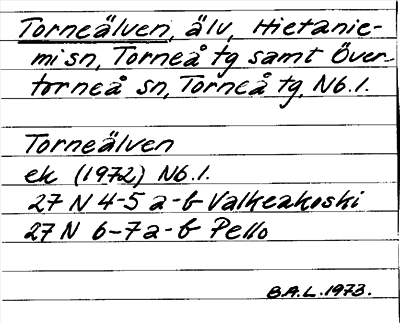 Torneälven, älv, Hietanie-
mi sn, Torneå tg samt Över-
torneå sn, Torneå tg, Nb.l.
Torneälven
ek (1972) Nb.l.
27 N 4-5 a-b Valkeakoski
27 N 6-7 a-b Pello
B.A.L. 1973.